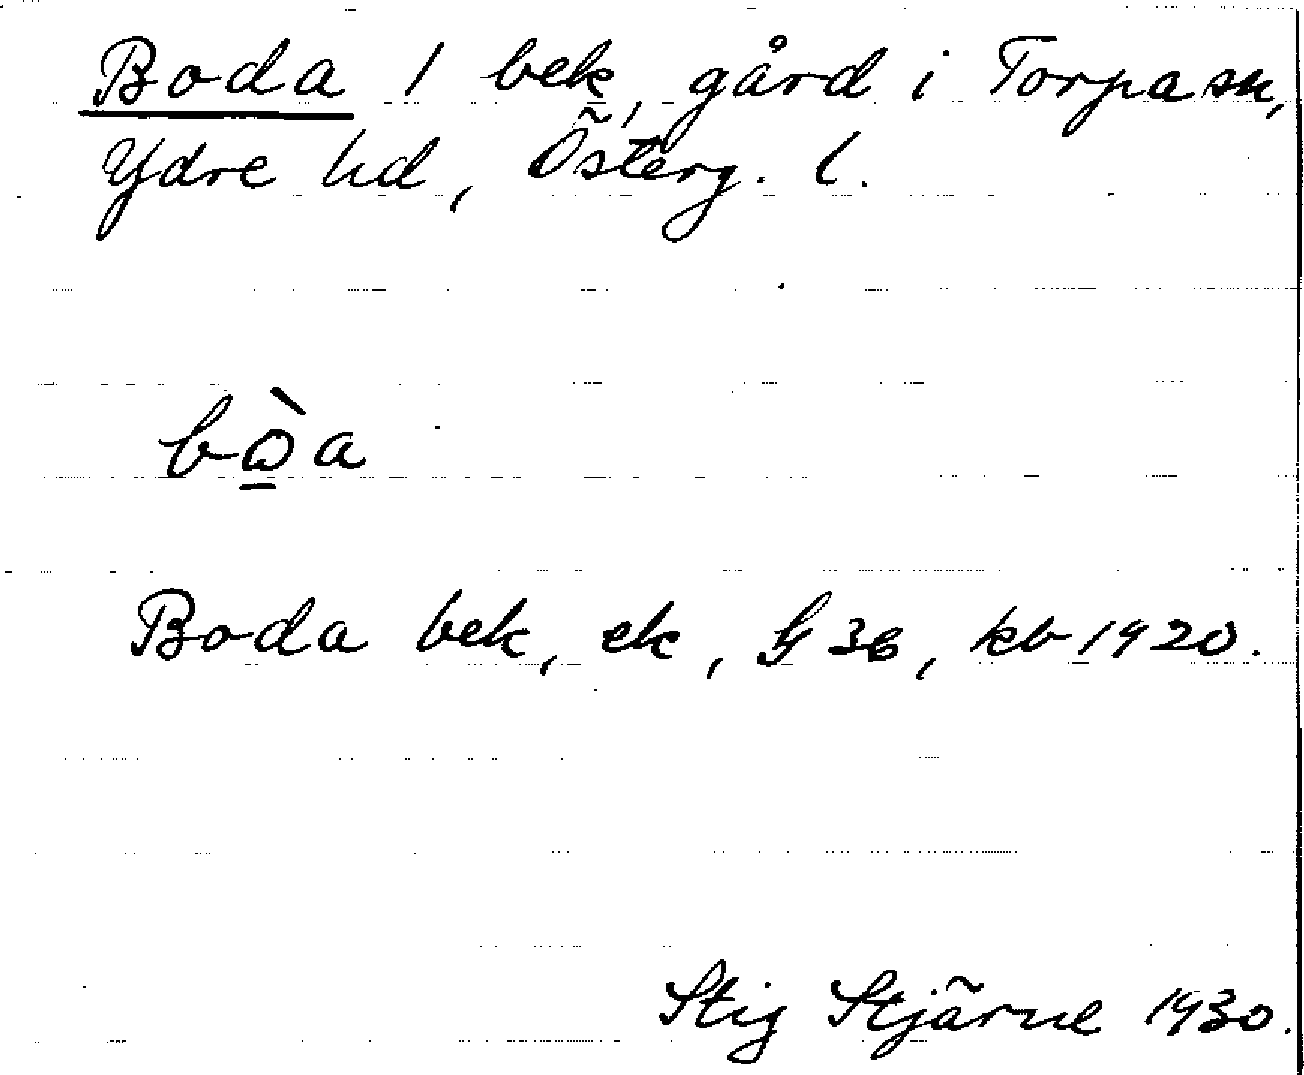 Boda 1 bek, gård i Torpa sn,
Ydre hd, Österg. l.
bòa
Boda bek, ek, G 36, kb 1920.
Stig Stjärne 1930.